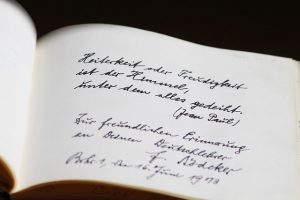 Heiterkeit oder Freudigkeit
ist der Himmel,
unter dem alles gedeiht.
(Jean Paul)
Zur freundlichen Erinnerung
an Deinen Deutschlehrer
F. Rödeker
den 16. Juni 1970